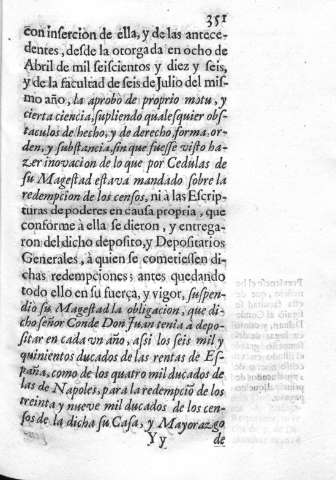 351
con insercion de ella, y de las antece-
dentes, desde la otorgada en ocho de
Abril de mil seiscientos y diez y seis,
y de la facultad de seis de Julio del mis-
mo año, la aprobò de proprio motu, y
cierta ciencia, supliendo qualesquier obs-
taculos de hecho, y de derecho, forma, or-
den, y substancia, sin que fuesse visto ha-
zer inovacion de lo que por Cedulas de
su Magestad estava mandado sobre la
redempcion de los censos, ni à las Escrip-
turas de poderes en causa propria, que
conforme à ella se dieron, y entrega-
ron del dicho deposito, y Depositarios
Generales, à quien se cometiessen di-
chas redempciones; antes quedando
todo ello en su fuerça, y vigor, suspen-
dio su Magestad la obligacion, que di-
cho señor Conde Don Juan tenia à depo-
sitar en cada vn año, assi los seis mil y
quinientos ducados de las rentas de Es-
paña, como de los quatro mil ducados de
las de Napoles, para la redempciõ de los
treinta y nueve mil ducados de los cen-
sos de la dicha su Casa, y Mayorazgo
Yy de